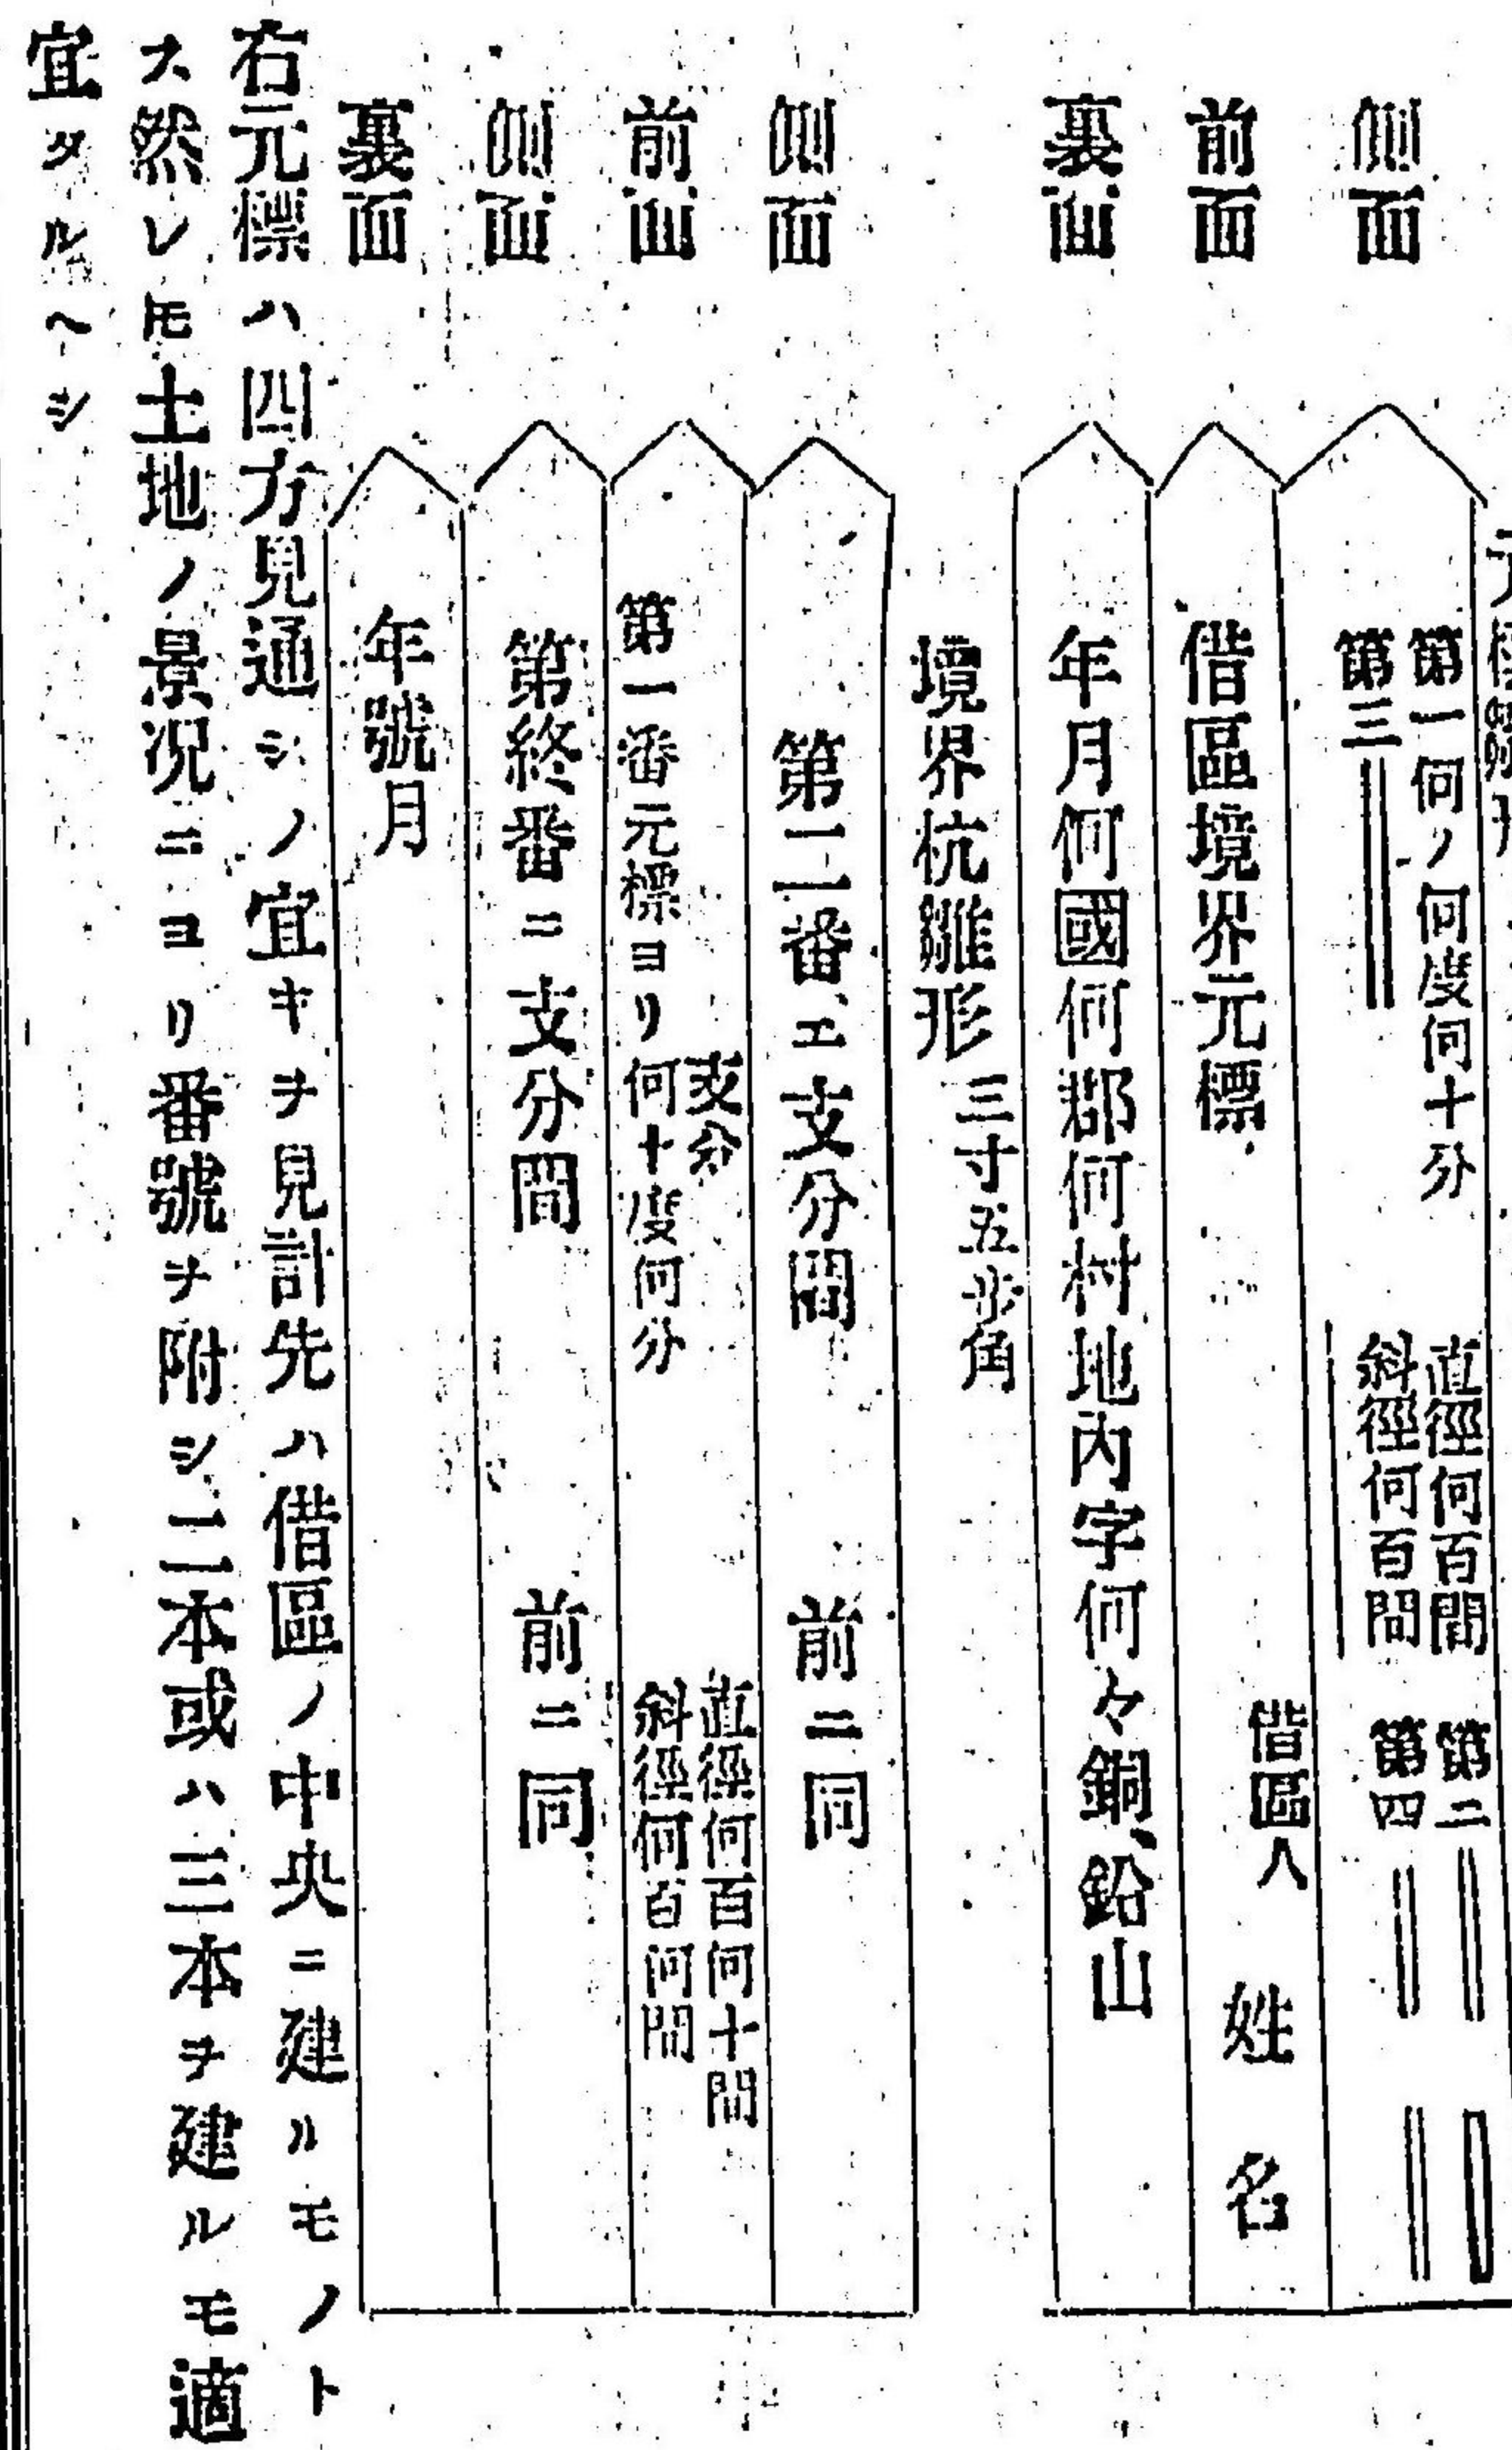 側面
第一何ノ何度何十分 直徑何百間 第二
第三 斜徑何百間 第四
前面
借區境界元標 借區人 姓名
裏面
年月何國何郡何村地内字何々銅、鉛山
境界杭雛形 三寸五歩角
側面
第二番、エ支分間 前ニ同
前面
支分 直徑何百何十間
第一番元標ヨリ何十度何分 斜徑何百何間
側面
第終番ニ支分間 前ニ同
裏面
年號月
右元標ハ四方見通シノ宜キヲ見計先ハ借區ノ中央ニ建ルモノト
ス然レ𪜈土地ノ景況ニヨリ番號ヲ附シ二本或ハ三本ヲ建ルモ適
宜タルヘシ